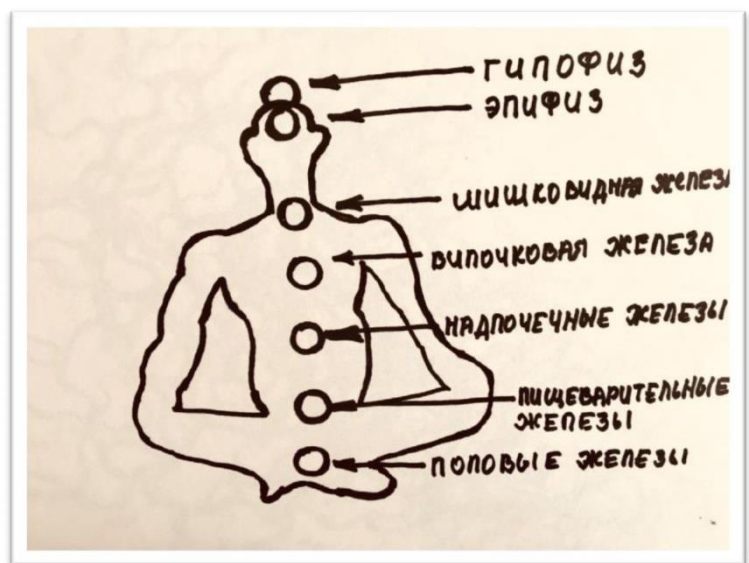 ГИПОФИЗ
ЭПИФИЗ
ШИШКОВИДНАЯ ЖЕЛЕЗ
ВИЛОЧКОВАЯ ЖЕЛЕЗА
НАДПОЧЕЧНЫЕ ЖЕЛЕЗЫ
ПИЩЕВАРИТЕЛЬНЫЕ
ЖЕЛЕЗЫ
ПОЛОВЫЕ ЖЕЛЕЗЫ